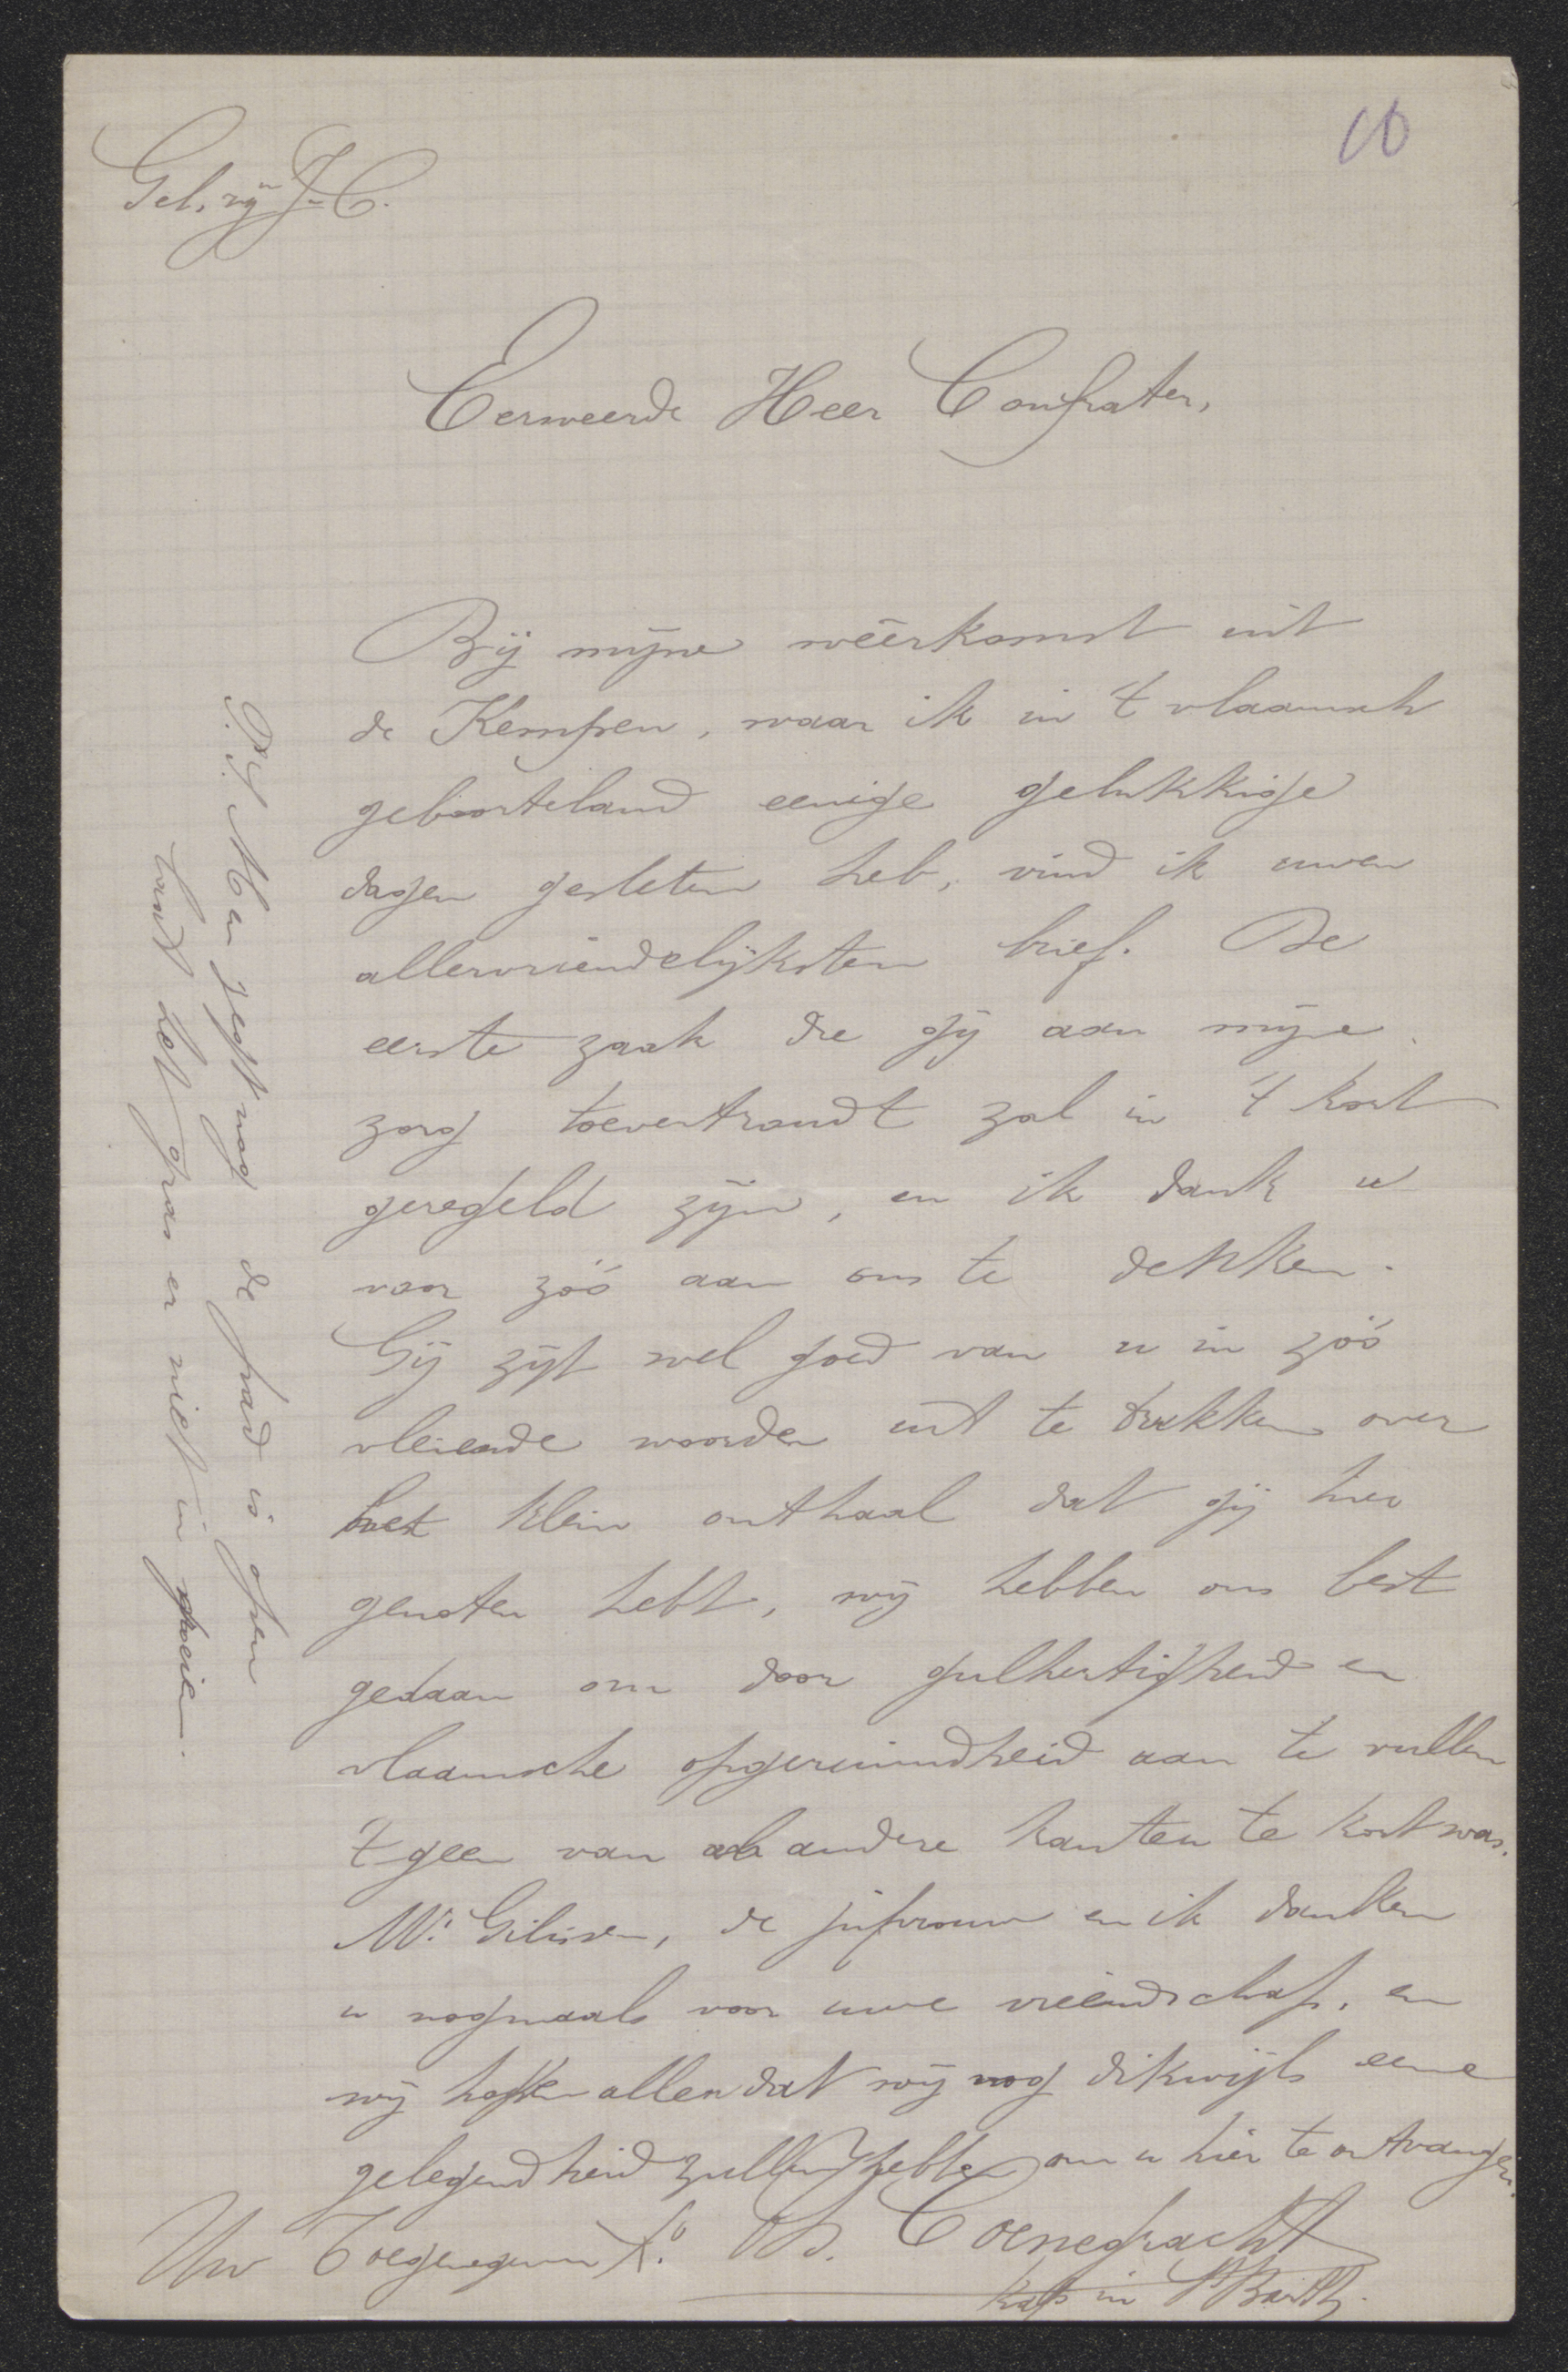 10
Gel. zij J-C.
Eerweerde Heer Confrater,
Bij mijne wêerkomst uit
de Kempen, waar ik in 't vlaamsch
geboorteland eenige gelukkige
dagen gesleten heb, vind ik uwen
allervriendelijksten brief. De
eerste zaak die gij aan mijne
zorg toevertrouwdt zal in 't kort
geregeld zijn, en ik dank u
voor zóó aan ons te denken.
Gij zijt wel goed van u in zóó
vleiende woorden uit te drukken over
het klein onthaal dat gij hier
genoten hebt, wij hebben ons best
gedaan om door gulhertigheid en
vlaamsche opgeruimdheid aan te vullen
't geen van andere kanten te kort was.
Mr. Gilissen, de jufvrouw en ik danken
u nogmaals voor uwe vriendschap, en
wij hopen allen dat wij nog dikwijls eene
gelegendheid zullen hebben om u hier te ontvangen.
Uw Toegenegenen Co. Coenegracht
kap in St Barth.
P.S. Men zegt nog de pad is open
want het gras er niet in groeien.